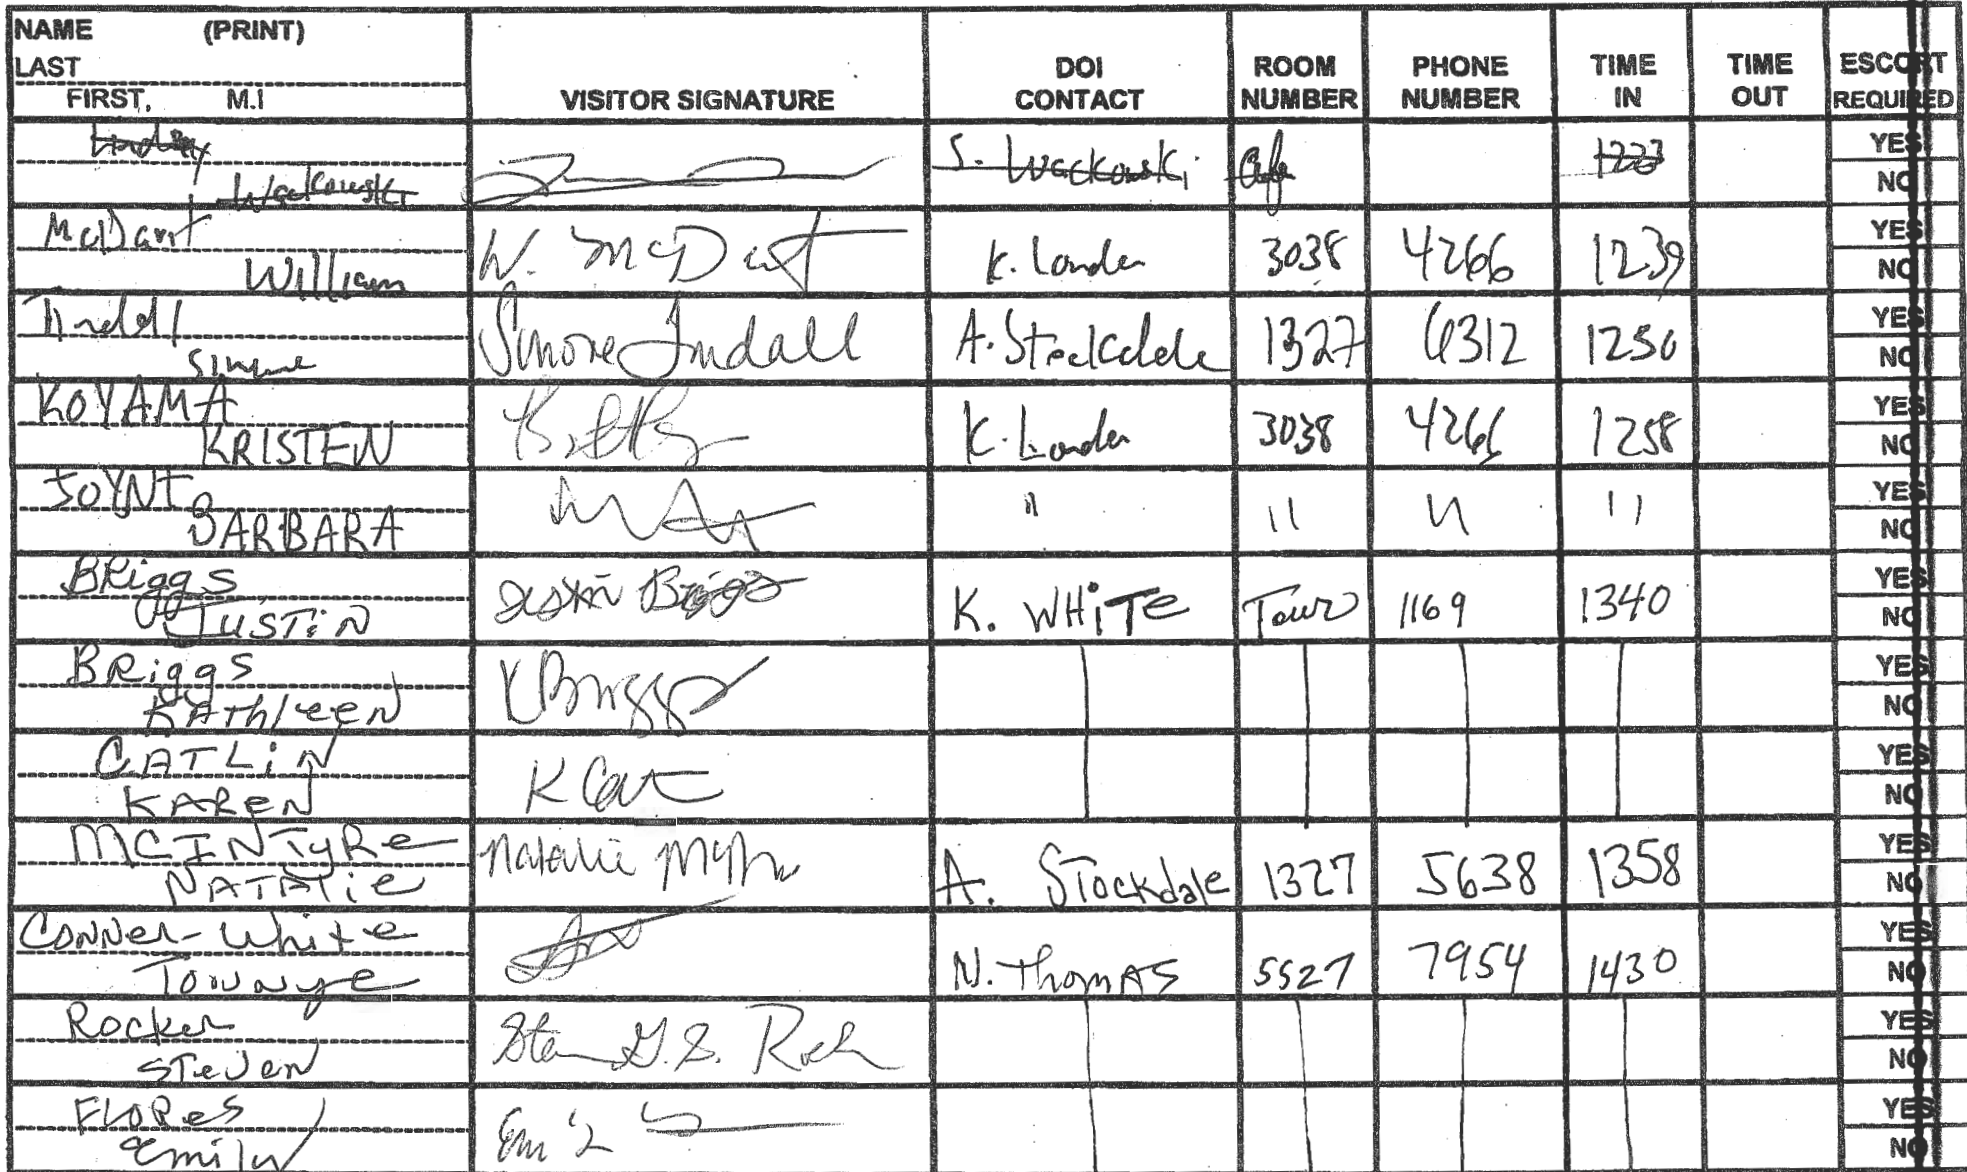 NAME (PRINT)
LAST
FIRST, M.I
VISITOR SIGNATURE
DOI CONTACT
ROOM NUMBER
PHONE NUMBER
TIME IN
TIME OUT
ESCORT REQUIRED
Lindsay
Wackowski
S. Wackowski Cafe 1223
YES
NO
McDavit
William
W. McDavit K. London 3038 4266 1239
YES
NO
Tindall
Simone
Simone Tindall A. Stockdale 1327 6312 1250
YES
NO
KOYAMA
KRISTEN
K. London 3038 4266 1258
YES
NO
JOYNT
BARBARA
" " " "
YES
NO
BRiggs
JUSTiN
Justin Briggs K. WHiTe Tour 1169 1340
YES
NO
BRiggs
KAThleeN
K Briggs
YES
NO
CATLiN
KAReN
K Cat
YES
NO
MCINTyRe
NATALie
Natalie A. STockdale 1327 5638 1358
YES
NO
CONNeR-White
Townye
N. ThomAS 5527 7954 1430
YES
NO
Rocker
STeVeN
YES
NO
FLORes
Emily
YES
NO